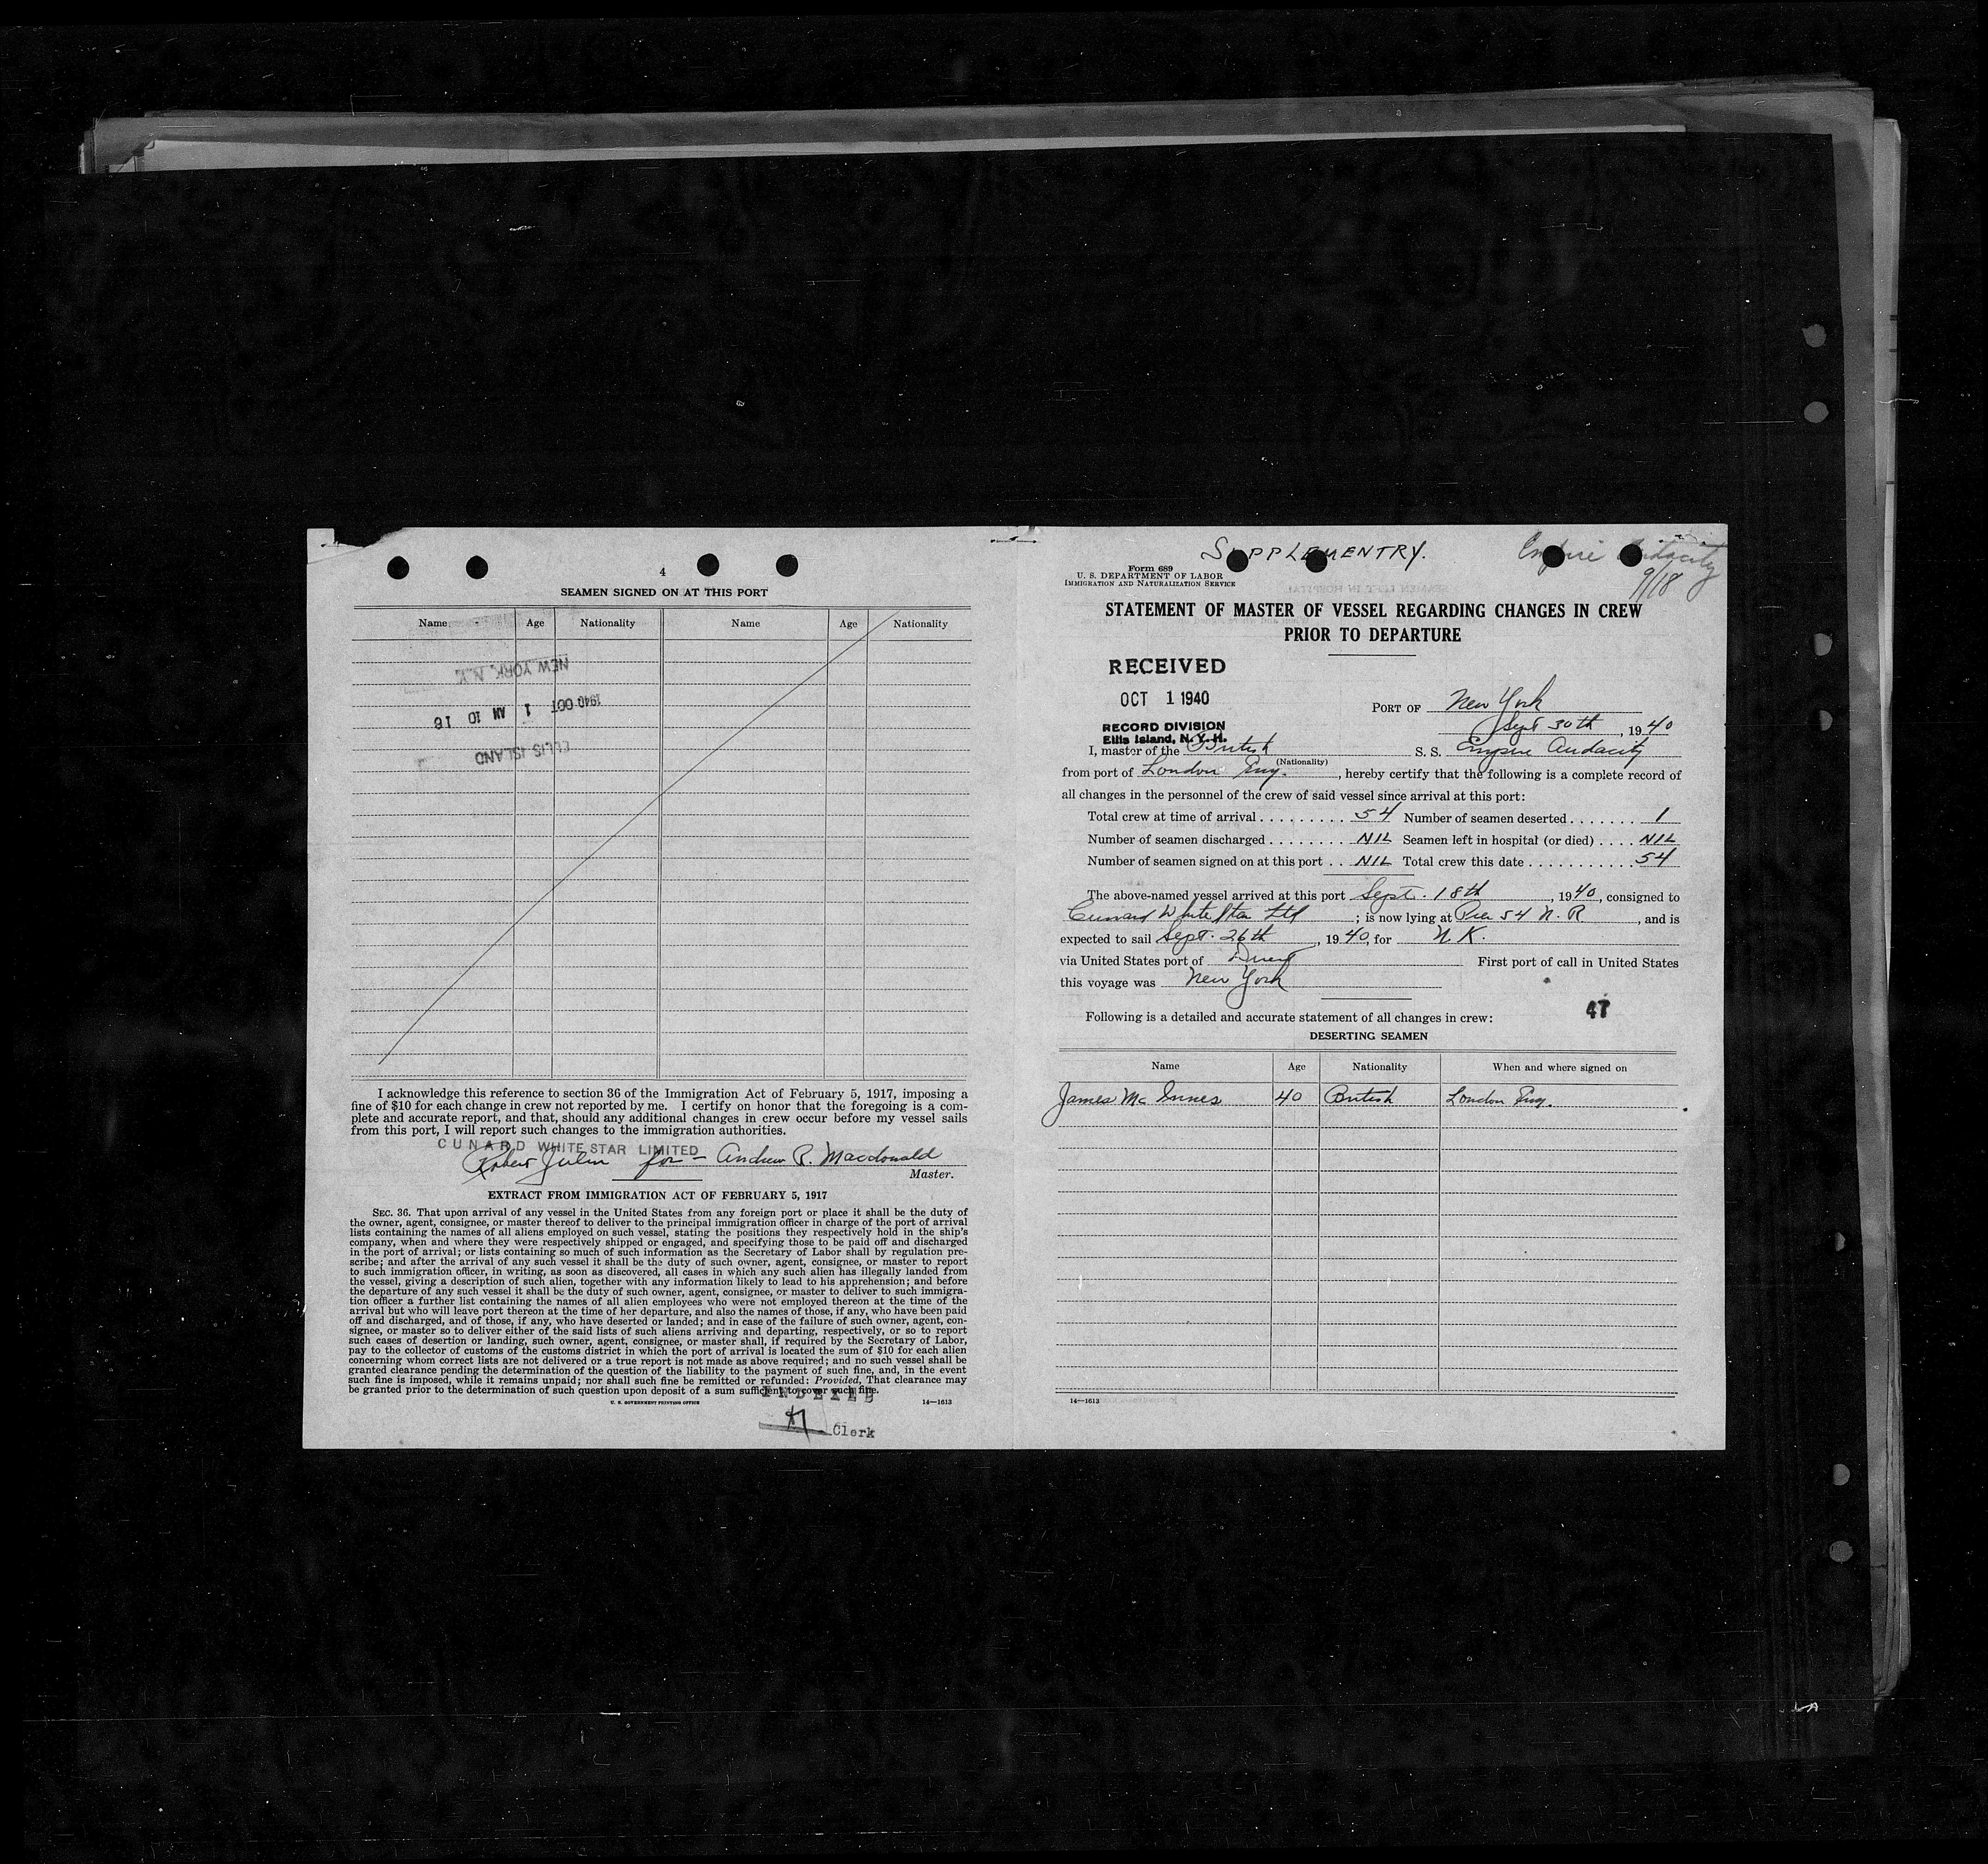 4
SEAMEN SIGNED ON AT THIS PORT
Name Age Nationality Name Age Nationality
NEW YORK, N.Y.
1940 OCT 1 AM 10 16
ELLIS ISLAND
I acknowledge this reference to section 36 of the Immigration Act of February 5, 1917, imposing a
fine of $10 for each change in crew not reported by me. I certify on honor that the foregoing is a com-
plete and accurate report, and that, should any additional changes in crew occur before my vessel sails
from this port, I will report such changes to the immigration authorities.
CUNARD WHITE STAR LIMITED
Robert for - Andrew P. Macdonald
Master.
EXTRACT FROM IMMIGRATION ACT OF FEBRUARY 5, 1917
SEC. 36. That upon arrival of any vessel in the United States from any foreign port or place it shall be the duty of
the owner, agent, consignee, or master thereof to deliver to the principal immigration officer in charge of the port of arrival
lists containing the names of all aliens employed on such vessel, stating the positions they respectively hold in the ship's
company, when and where they were respectively shipped or engaged, and specifying those to be paid off and discharged
in the port of arrival; or lists containing so much of such information as the Secretary of Labor shall by regulation pre-
scribe; and after the arrival of any such vessel it shall be the duty of such owner, agent, consignee, or master to report
to such immigration officer, in writing, as soon as discovered, all cases in which any such alien has illegally landed from
the vessel, giving a description of such alien, together with any information likely to lead to his apprehension; and before
the departure of any such vessel it shall be the duty of such owner, agent, consignee, or master to deliver to such immigra-
tion officer a further list containing the names of all alien employees who were not employed thereon at the time of the
arrival but who will leave port thereon at the time of her departure, and also the names of those, if any, who have been paid
off and discharged, and of those, if any, who have deserted or landed; and in case of the failure of such owner, agent, con-
signee, or master so to deliver either of the said lists of such aliens arriving and departing, respectively, or so to report
such cases of desertion or landing, such owner, agent, consignee, or master shall, if required by the Secretary of Labor,
pay to the collector of customs of the customs district in which the port of arrival is located the sum of $10 for each alien
concerning whom correct lists are not delivered or a true report is not made as above required; and no such vessel shall be
granted clearance pending the determination of the question of the liability to the payment of such fine, and, in the event
such fine is imposed, while it remains unpaid; nor shall such fine be remitted or refunded: Provided, That clearance may
be granted prior to the determination of such question upon deposit of a sum sufficient to cover such fine.
INDEXED
U. S. GOVERNMENT PRINTING OFFICE 14—1613
Clerk
SUPPLEMENTRY.
Empire Audacity
9/18
Form 689
U. S. DEPARTMENT OF LABOR
IMMIGRATION AND NATURALIZATION SERVICE
STATEMENT OF MASTER OF VESSEL REGARDING CHANGES IN CREW
PRIOR TO DEPARTURE
RECEIVED
OCT 1 1940
RECORD DIVISION
Ellis Island, N. Y. H.
PORT OF New York
Sept 30th, 1940
I, master of the British S. S. Empire Audacity
(Nationality)
from port of London Eng., hereby certify that the following is a complete record of
all changes in the personnel of the crew of said vessel since arrival at this port:
Total crew at time of arrival......... 54 Number of seamen deserted....... 1
Number of seamen discharged........ NIL Seamen left in hospital (or died).... NIL
Number of seamen signed on at this port.. NIL Total crew this date........... 54
The above-named vessel arrived at this port Sept. 18th, 1940, consigned to
Cunard White Star Ltd; is now lying at Pier 54 N. R, and is
expected to sail Sept. 26th, 1940, for U. K.
via United States port of Direct First port of call in United States
this voyage was New York
47
Following is a detailed and accurate statement of all changes in crew:
DESERTING SEAMEN
Name Age Nationality When and where signed on
James Mc Innes 40 British London Eng.
14—1613